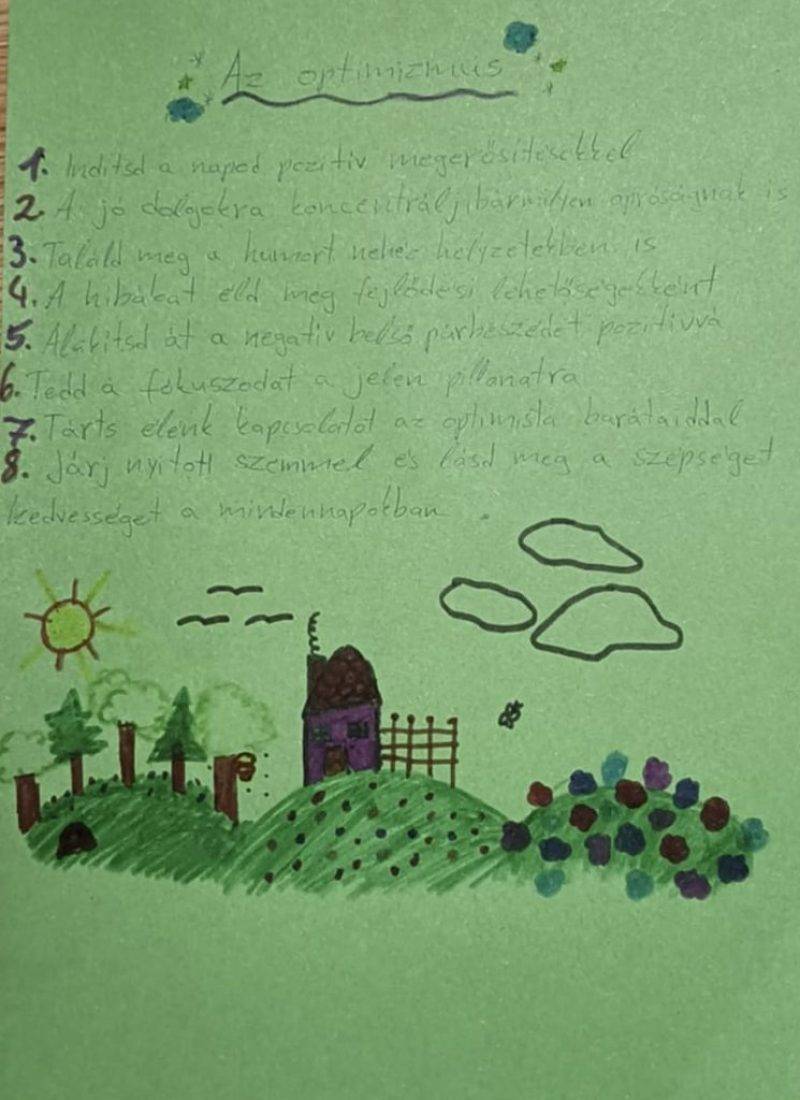 Az optimizmus
1. Indítsd a napod pozitív megerősítésekkel
2. A jó dolgokra koncentrálj, bármilyen apróságnak is
3. Találd meg a humort nehéz helyzetekben is
4. A hibákat éld meg fejlődési lehetőségekként
5. Alakítsd át a negatív belső párbeszédet pozitívvá
6. Tedd á fókuszodat a jelen pillanatra
7. Tarts élénk kapcsolatot az optimista barátaiddal
8. Járj nyitott szemmel és lásd meg a szépséget
kedvességet a mindennapokban.